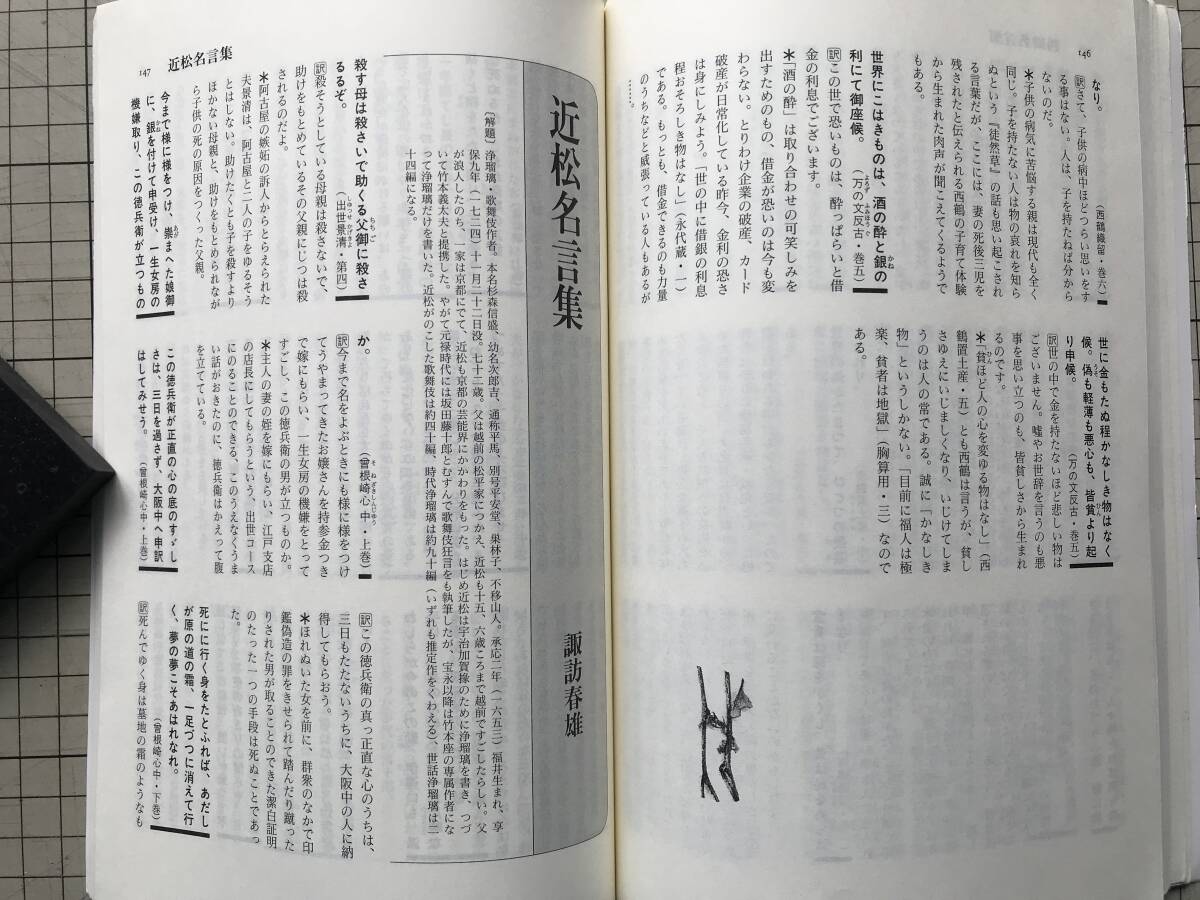 146
なり。
(西鶴織留・巻六)
訳さて、子供の病中ほどつらい思いをす
る事はない。人は、子を持たねば分から
ないのだ。
＊子供の病気に苦悩する親は現代も全く
同じ。子を持たない人は物の哀れを知ら
ぬという『徒然草』の話も思い起こされ
る言葉だが、ここには、妻の死後三児を
残されたと伝えられる西鶴の子育て体験
から生まれた肉声が聞こえてくるようで
もある。
世界にこはきものは、酒の酔と銀の
利にて御座候。
(万の文反古・巻五)
訳この世で恐いものは、酔っぱらいと借
金の利息でございます。
＊「酒の酔」は取り合わせの可笑しみを
出すためのもの、借金が恐いのは今も変
わらない。とりわけ企業の破産、カード
破産が日常化している昨今、金利の恐さ
は身にしみよう。「世の中に借銀の利息
程おそろしき物はなし」(永代蔵・一)
である。もっとも、借金できるのも力量
のうちなどと威張っている人もあるが
……。
世に金もたぬ程かなしき物はなく
候。偽も軽薄も悪心も、皆貧より起
り申候。
(万の文反古・巻五)
訳世の中で金を持たないほど悲しい物は
ございません。嘘やお世辞を言うのも悪
事を思い立つのも、皆貧しさから生まれ
るのです。
＊「貧ほど人の心を変ゆる物はなし」(西
鶴置土産・五)とも西鶴は言うが、貧し
さゆえにいじましくなり、いじけてしま
うのは人の常である。誠に「かなしき
物」というしかない。「目前に福人は極
楽、貧者は地獄」(胸算用・三)なので
ある。
近松名言集
147
近松名言集
諏訪春雄
〔解題〕浄瑠璃・歌舞伎作者。本名杉森信盛、幼名次郎吉、通称平馬、別号平安堂、巣林子、不移山人。承応二年(一六五三)福井生まれ、享
保九年(一七二四)十一月二十二日没。七十二歳。父は越前の松平家につかえ、近松も十五、六歳ころまで越前ですごしたらしい。父
が浪人したのち、一家は京都にでて、近松も京都の芸能界にかかわりをもった。はじめ近松は宇治加賀掾のために浄瑠璃を書き、つづ
いて竹本義太夫と提携した。やがて元禄時代には坂田藤十郎とむすんで歌舞伎狂言をも執筆したが、宝永以降は竹本座の専属作者にな
って浄瑠璃だけを書いた。近松がのこした歌舞伎は約四十編、時代浄瑠璃は約九十編(いずれも推定作をくわえる)世話浄瑠璃は二
十四編になる。
殺す母は殺さいで助くる父御に殺さ
るるぞ。
(出世景清・第四)
訳殺そうとしている母親は殺さないで、
助けをもとめているその父親にじつは殺
されるのだよ。
＊阿古屋の嫉妬の訴人からとらえられた
夫景清は、阿古屋と二人の子をゆるそう
とはしない。助けたくとも子を殺すより
ほかない母親と、助けをもとめられなが
ら子供の死の原因をつくった父親。
今まで様に様をつけ、崇まへた娘御
に、銀を付けて申受け、一生女房の
機嫌取り、この徳兵衛が立つもの
か。
(曾根崎心中・上巻)
訳今まで名をよぶときにも様に様をつけ
てうやまってきたお嬢さんを持参金つき
で嫁にもらい、一生女房の機嫌をとって
すごし、この徳兵衛の男が立つものか。
＊主人の妻の姪を嫁にもらい、江戸支店
の店長にしてもらうという、出世コース
にのることのできる、このうえなくうま
い話がおきたのに、徳兵衛はかえって腹
を立てている。
この徳兵衛が正直の心の底のすゞし
さは、三日を過さず、大阪中へ申訳
はしてみせう。
(曾根崎心中・上巻)
訳この徳兵衛の真っ正直な心のうちは、
三日もたたないうちに、大阪中の人に納
得してもらおう。
＊ほれぬいた女を前に、群衆のなかで印
鑑偽造の罪をきせられて踏んだり蹴った
りされた男が取ることのできた潔白証明
のたった一つの手段は死ぬことであっ
た。
死にに行く身をたとふれば、あだし
が原の道の霜、一足づつに消えて行
く、夢の夢こそあはれなれ。
(曾根崎心中・下巻)
訳死んでゆく身は墓地の霜のようなも